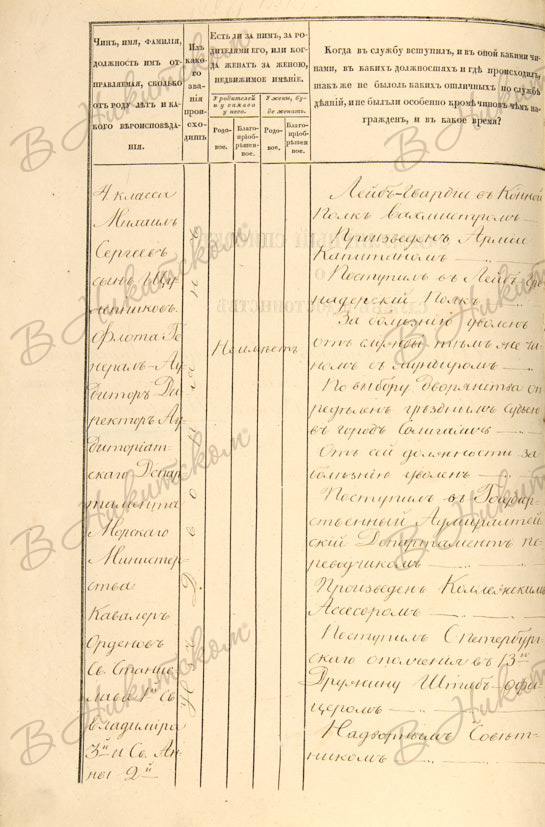 Чинъ, имя, фамилія,
должность имъ от-
правляемая, сколько
отъ роду лѣтъ и ка-
кого вѣроисповѣда-
нія.
Изъ
како-
го зва-
нія
проис-
ходитъ
Есть ли за нимъ, за ро-
дителями его, или ког-
да женатъ за женою,
недвижимое имѣніе.
У родителей
и у самаго
у него.
У жены, бу-
де женатъ.
Родо-
вое.
Благо-
пріоб-
рѣтен-
ное.
Родо-
вое.
Благо-
пріоб-
рѣтен-
ное.
Когда въ службу вступилъ, и въ оной какими чи-
нами, въ какихъ должностяхъ и гдѣ происходилъ,
также не было ль какихъ отличныхъ по службѣ
дѣяній, и не былъ ли особенно кромѣ чиновъ чѣмъ на-
гражденъ, и въ какое время?
4 класса
Михаилъ
Сергѣевъ
сынъ Щу-
лепниковъ.
Флота Ге-
нералъ-Ау-
диторъ Ди-
ректоръ Ау-
диторіат-
скаго Депар-
тамента
Морскаго
Министер-
ства
Кавалеръ
Орденовъ
Св. Станис-
лава 1й Св.
Владиміра
3й и Св. Ан-
ны 2й
Изъ Дворянъ
Неимѣетъ
Лейбъ-Гвардіи въ Конной
Полкъ Вахмистромъ
Произведенъ Арміи
Капитаномъ
Поступилъ въ Лейбъ-Гре-
надерскій Полкъ
За болѣзнію уволенъ
отъ службы тѣмъ же чи-
номъ съ мундиромъ
По выбору Дворянства оп-
редѣленъ уѣзднымъ судьею
въ городъ Солигаличъ
Отъ сей должности за
болѣзнію уволенъ
Поступилъ въ Государ-
ственный Адмиралтей-
скій Департаментъ пе-
реводчикомъ
Произведенъ Коллежскимъ
Асесоромъ
Поступилъ С.петербург-
скаго ополченія въ 13ю
Дружину Штабъ-офи-
церомъ
Надворнымъ Совѣт-
никомъ
В. Никитском